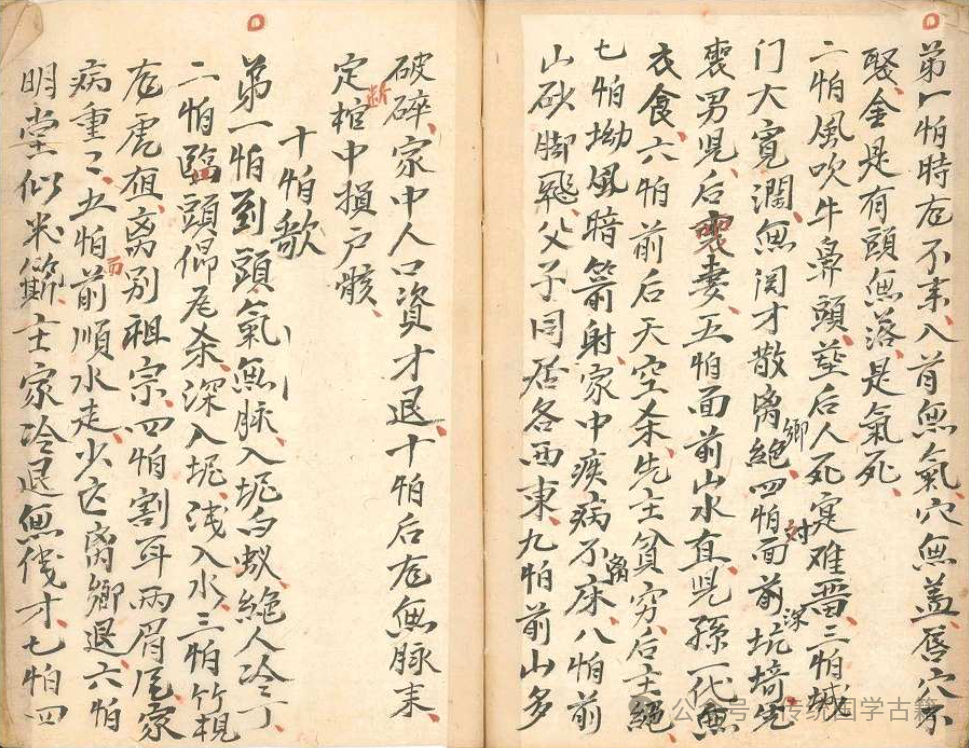 第一怕時右不来入首無氣穴無盖唇穴不
聚金是有頭無落是氣死
二怕風吹牛鼻頭葬后人死寔难畱三怕城
门大寛濶無関才散离鄉絕四怕面前対坑深埼先
喪男児后喪妻五怕面前山水直児孫一代無
衣食六怕前后天空杀先士貧穷后士絕
七怕坳風暗箭射家中疾病不离床八怕前
山砂脚飛父子同居各西東九怕前山多
破碎家中人口資才退十怕后龙無脉来
定断棺中損戸骸
十怕歌
第一怕到頭氣無脉入坭白蚁絕人冷丁
二怕臨頭仰尾杀深入坭浅入水三怕竹
龙虎离别祖宗四怕割耳兩眉尾家
病重重五怕前面順水走少亡离鄉退六怕
明堂似米篩士家冷退無伐才七怕四
公众号 传统国学古籍